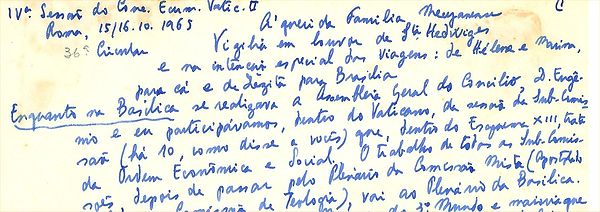 IVª Sessão do Conc. Ecum. Vatic. II
Roma, 15/16.10.1965
36ª Circular
À querida Família Mecejanense
Vigília em louvor de Sta Hedviges
e na intenção especial das viagens: de Hélène e Marina,
para cá e de Zezita para Brasília
Enquanto na Basílica se realizava a Assembleia Geral do Concílio, D. Eugê-
nio e eu participávamos, dentro do Vaticano, da sessão da Sub-Comis-
são (há 10, como disse a vocês) que, dentro do Esquema XIII, trata
da Ordem Econômica e Social. O trabalho de todas as Sub-Comis-
sões, depois de passar pelo Plenário da Comissão Mista (Apostolado
Comissão de Teologia), vai ao Plenário da Basílica.
3º Mundo e